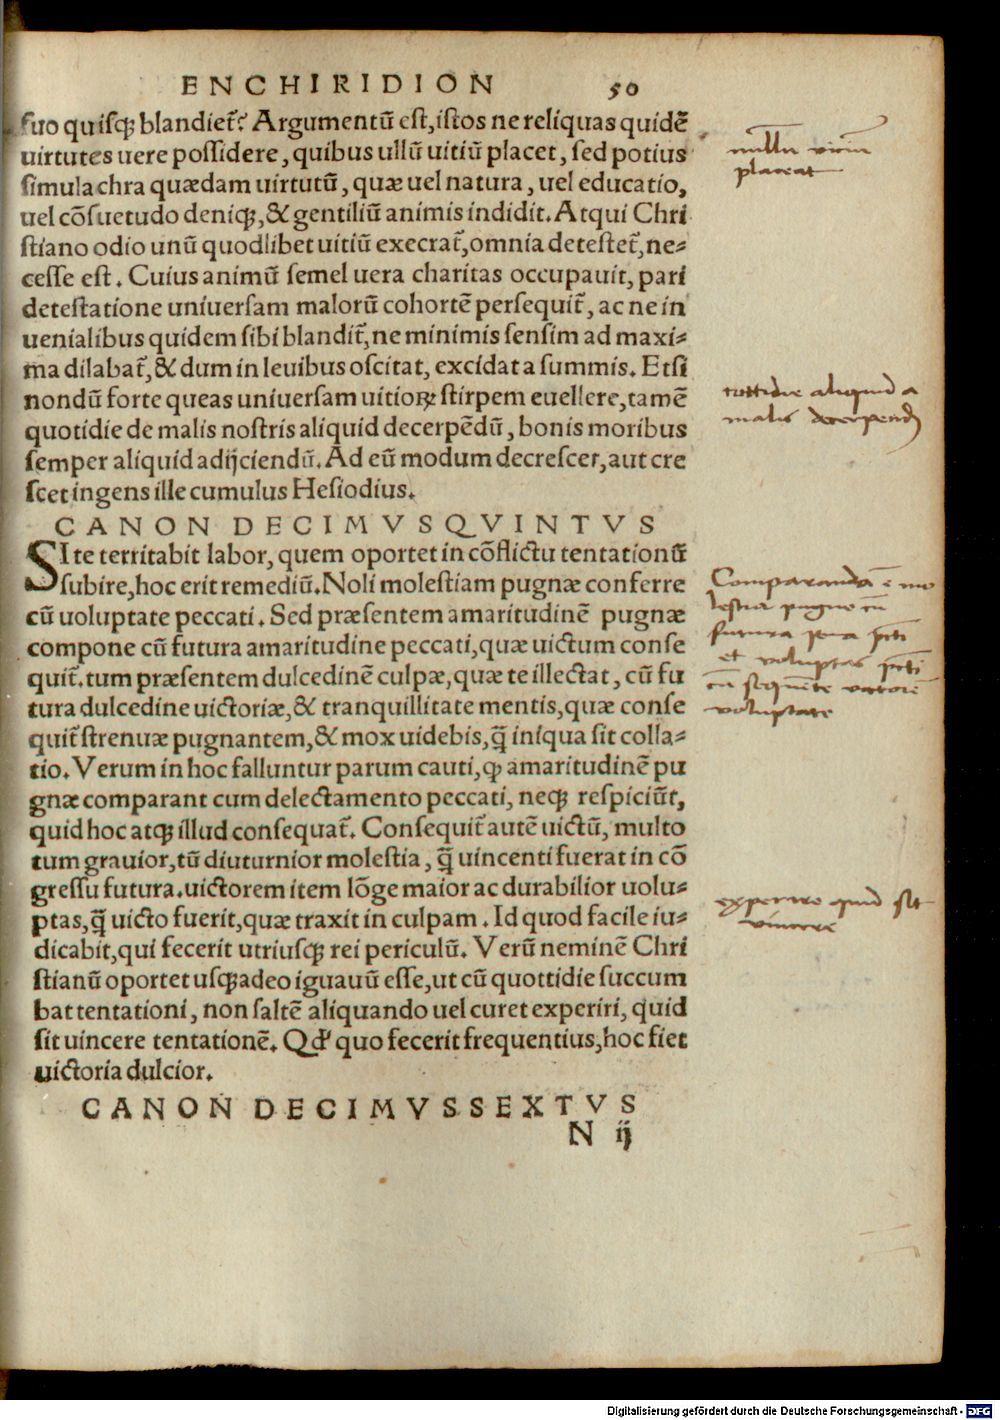 ENCHIRIDION 50
suo quisq; blandiet̃? Argumentũ est, istos ne reliquas quidẽ
uirtutes uere possidere, quibus ullũ uitiũ placet, sed potius
simulachra quædam uirtutũ, quæ uel natura, uel educatio,
uel cõsuetudo deniq;, & gentiliũ animis indidit. Atqui Chri
stiano odio unũ quodlibet uitiũ execrat̃, omnia detestet̃, ne-
cesse est. Cuius animũ semel uera charitas occupauit, pari
detestatione uniuersam malorũ cohortẽ persequit̃, ac ne in
uenialibus quidem sibi blandit̃, ne minimis sensim ad maxi-
ma dilabat̃, & dum in leuibus oscitat, excidat a summis. Etsi
nondũ forte queas uniuersam uitioꝝ stirpem euellere, tamẽ
quotidie de malis nostris aliquid decerpẽdũ, bonis moribus
semper aliquid adijciendũ. Ad eũ modum decrescet, aut cre
scet ingens ille cumulus Hesiodius.
CANON DECIMVSQVINTVS
SI te territabit labor, quem oportet in cõflictu tentationũ
subire, hoc erit remediũ. Noli molestiam pugnæ conferre
cũ uoluptate peccati. Sed præsentem amaritudinẽ pugnæ
compone cũ futura amaritudine peccati, quæ uictum conse
quit̃. tum præsentem dulcedinẽ culpæ, quæ te illectat, cũ fu
tura dulcedine uictoriæ, & tranquillitate mentis, quæ conse
quit̃ strenuæ pugnantem, & mox uidebis, q̃ iniqua sit colla-
tio. Verum in hoc falluntur parum cauti, ꝙ amaritudinẽ pu
gnæ comparant cum delectamento peccati, neq; respiciũt,
quid hoc atq; illud consequat̃. Consequit̃ autẽ uictũ, multo
tum grauior, tũ diuturnior molestia, q̃ uincenti fuerat in cõ
gressu futura. uictorem item lõge maior ac durabilior uolu-
ptas, q̃ uicto fuerit, quæ traxit in culpam. Id quod facile iu-
dicabit, qui fecerit utriusq; rei periculũ. Verũ neminẽ Chri
stianũ oportet usq; adeo iguauũ esse, ut cũ quottidie succum
bat tentationi, non saltẽ aliquando uel curet experiri, quid
sit uincere tentationẽ. Qđ quo fecerit frequentius, hoc fiet
uictoria dulcior.
CANON DECIMVSSEXTVS
N ij
nullũ viciũ
placeat
cottidie aliquid a
malis decerpend
Comparanda ẽ mo
lestia pugne cũ
futura pena pcti
et voluptas pcti
cũ
voluptate
experire quid sit
vincere
Digitalisierung gefördert durch die Deutsche Forschungsgemeinschaft - DFG